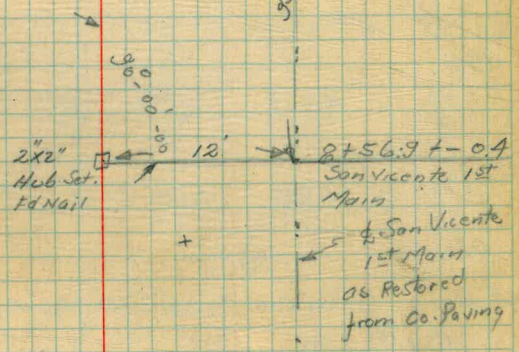 2"x2"
Hub Set.
Fd Nail
12'
8+56.9 +- 0.4
San Vicente 1st
Main
℄ San Vicente
1st Main
as Restored
from Co. Paving